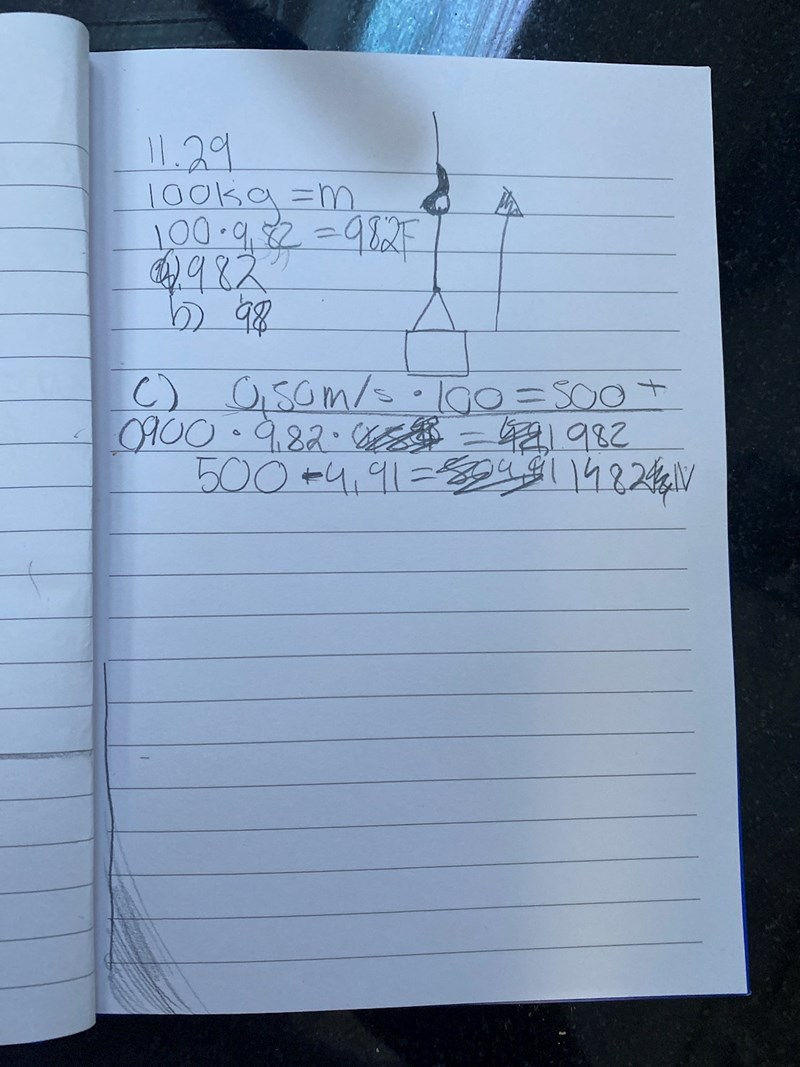 11.29
100kg = m
100 · 9,82 = 982F
a) 982
b) 98
c) 0,50 m/s · 100 = 500 +
100 · 9,82 · = 982
500 - 4,91 = 1482 N